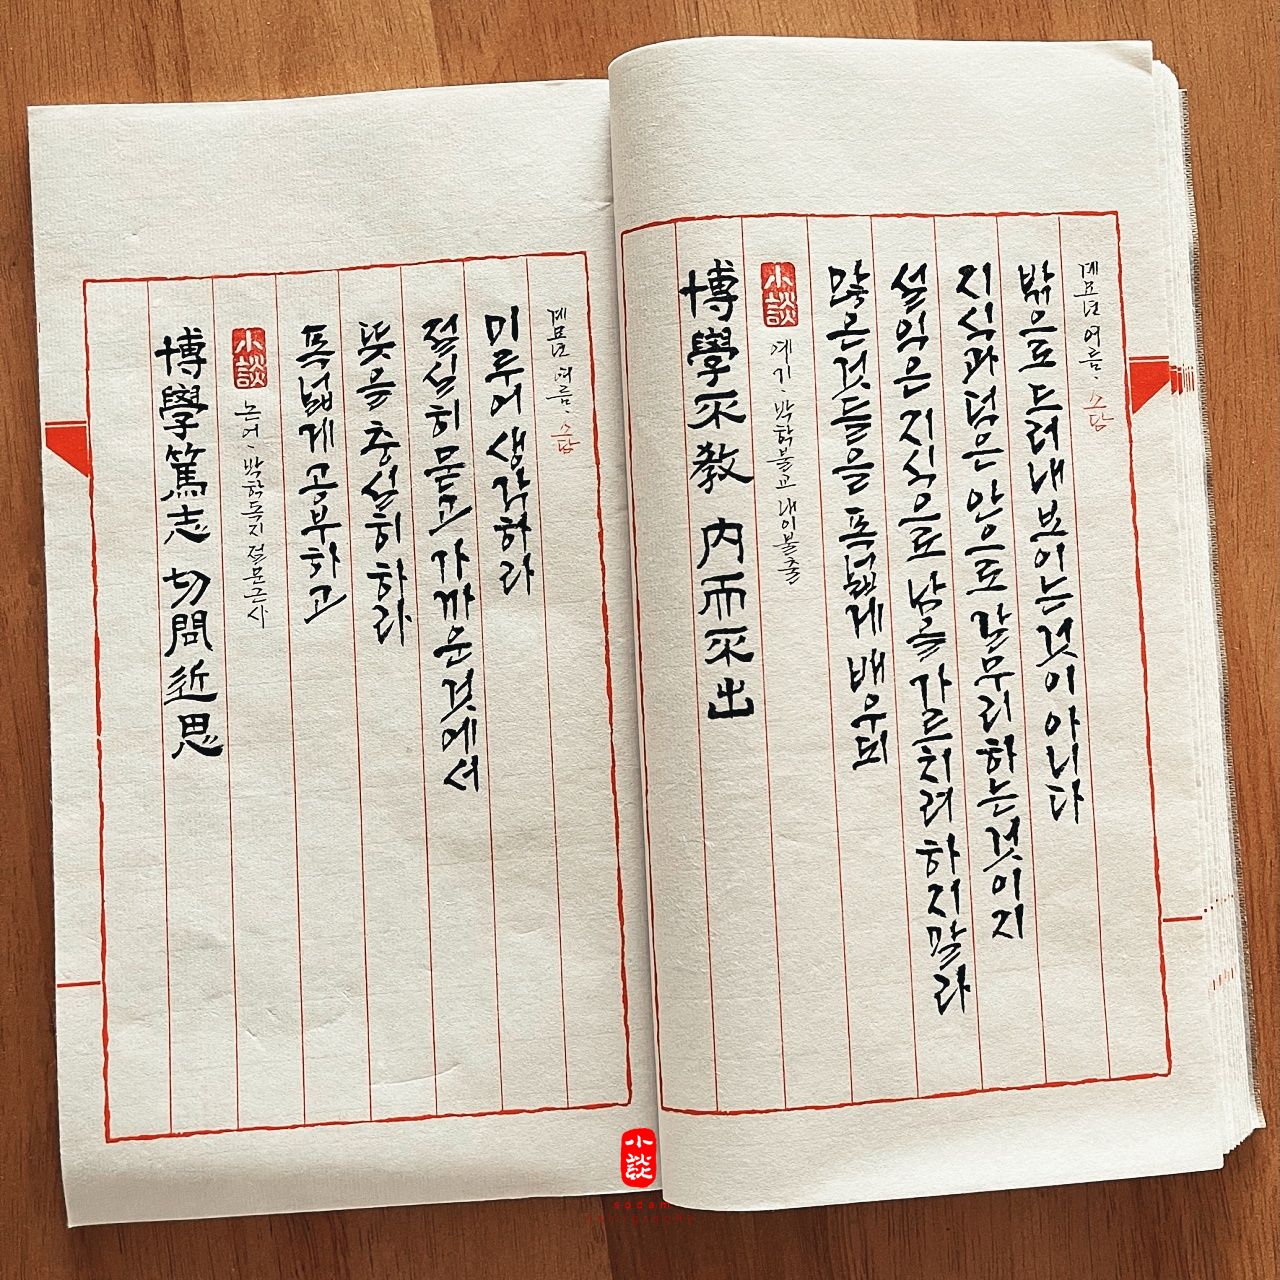 博學篤志 切問近思
小談
논어 - 박학독지 절문근사
폭넓게 공부하고
뜻을 충실히 하라
절실히 묻고 가까운 것에서
미루어 생각하라
계묘년 여름. 소담
博學不教 内而不出
小談
예기 - 박학불교 내이불출
많은것들을 폭넓게 배우되
설익은 지식으로 남을 가르치려 하지말라
지식과 덕은 안으로 갈무리하는것이지
밖으로 드러내 보이는것이 아니다
계묘년 여름. 소담
小談
sodam